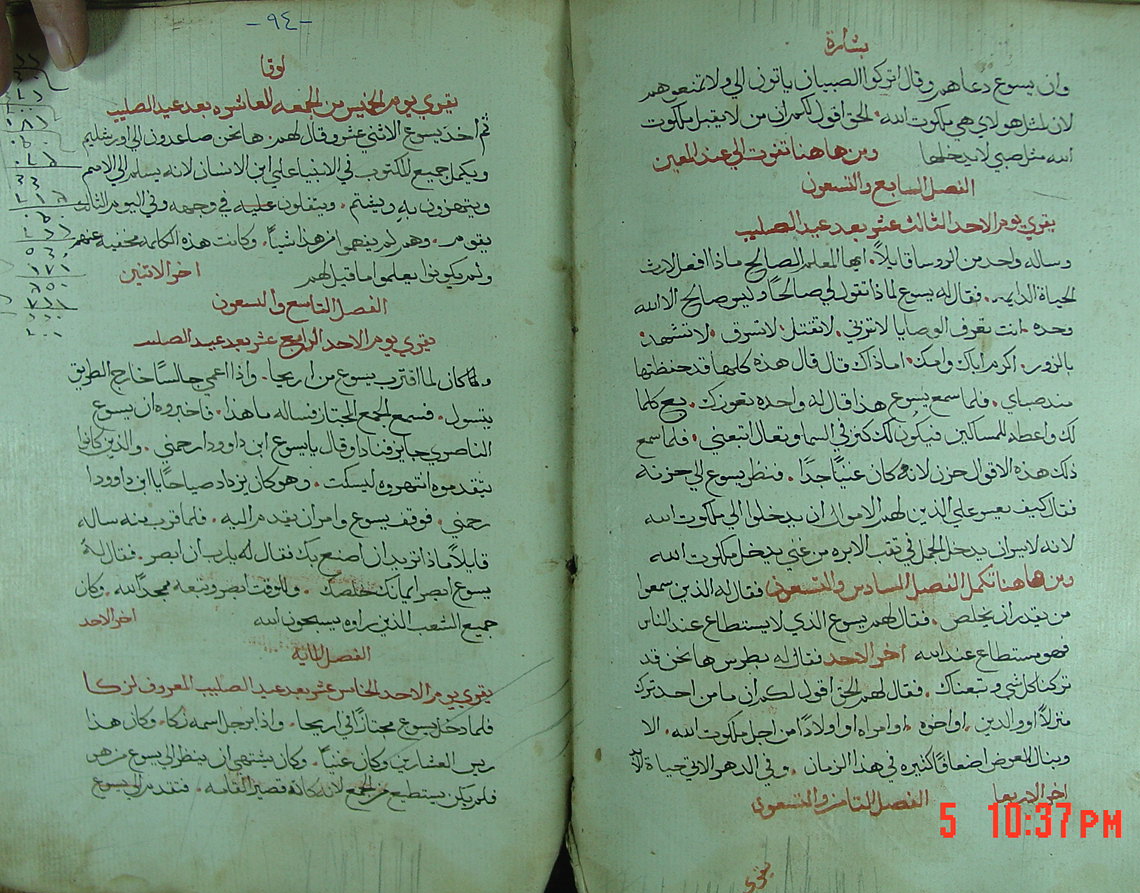 بشارة
وان يسوع دعاهم وقال اتركوا الصبيان ياتون الي ولا تمنعوهم
لان لمثل هولاي هي ملكوت الله. الحق اقول لكم ان من لا يقبل ملكوت
الله مثل صبي لا يدخلها ومن هاهنا تفوت الي عند المعين
الفصل السابع والتسعون
يقري يوم الاحد الثالث عشر بعد عيد الصليب
وساله واحد من الروسا قايلاً. ايها المعلم الصالح ماذا افعل لارث
الحياة الدايمه. فقال له يسوع لماذا تقول لي صالحاً وليس صالح الا الله
وحده. انت تعرف الوصايا لا تزني. لا تقتل. لا تسرق. لا تشهد
بالزور. اكرم اباك وامك. اما ذاك قال هذه كلها قد حفظتها
منذ صباي. فلما سمع يسوع هذا قال له واحده تعوزك. بع كلما
لك واعطه للمساكين فيكون لك كنز في السما وتعال اتبعني. فلما سمع
ذلك هذه الاقوال حزن لانه كان غنياً جداً. فنظر يسوع الي حزنه
فقال كيف يعسر علي الذين لهم الاموال ان يدخلوا الي ملكوت الله
لانه لايسر ان يدخل الجمل في ثقب الابره من غني يدخل ملكوت الله
ومن هاهنا تكمل الفصل السادس والتسعون فقال له الذين سمعوا
من يقدر ان يخلص. فقال لهم يسوع الذي لا يستطاع عند الناس
فهو يستطاع عند الله اخر الاحد فقال له بطرس ها نحن قد
تركنا كل شي وتبعناك. فقال لهم الحق اقول لكم ان ما من احد ترك
منزلاً او والدين. او اخوه. او امراه او اولاداً من اجل ملكوت الله. الا
وينال العوض اضعافاً كثيره في هذا الزمان. وفي الدهر الاتي حياة
اخر الاربعا الفصل الثامن والتسعون
يقري
-٩٤-
لوقا
يقري يوم الخميس من الجمعه العاشره بعد عيد الصليب
ثم اخذ يسوع الاثني عشر وقال لهم. ها نحن صاعدون الي اورشليم
ويكمل جميع المكتوب في الانبيا علي ابن الانسان لانه يسلم الي الامم
ويتهزون به ويشتم. ويتفلون عليه في وجهه وفي اليوم الثالث
يقوم. وهم لم يفهموا من هذا شياً. وكانت هذه الكلمه مخفيه عنهم
ولم يكونوا يعلموا ما قيل لهم اخر الاثنين
الفصل التاسع والتسعون
يقري يوم الاحد الرابع عشر بعد عيد الصليب
ولما كان لما اقترب يسوع من اريحا. واذا اعمي جالساً خارج الطريق
يتسول. فسمع الجمع المجتاز فساله ما هذا. فاخبروه ان يسوع
الناصري جايز فنادا وقال يا يسوع ابن داوود ارحمني. والذين كانوا
يتقدموه انتهروه ليسكت. وهو كان يزداد صياحاً يا ابن داوود ا
رحمني. فوقف يسوع وامر ان يقدم اليه. فلما قرب منه ساله
قايلاً ماذا تريد ان اصنع بك فقال له يا رب ان ابصر. فقال له
يسوع ابصر ايمانك خلصك. وللوقت ابصر وتبعه ممجداً لله. وكان
جميع الشعب الذين راوه يسبحون الله اخر الاحد
الفصل الماية
يقري يوم الاحد الخامس عشر بعد عيد الصليب المعروف لزكا
فلما دخل يسوع مجتازاً في اريحا. واذا برجل اسمه زكا. وكان هذا
ريس العشارين وكان غنياً. وكان يشتهي ان ينظر الي يسوع من هو
فلم يكن يستطيع من الجمع لانه كان قصير القامه. فتقدم الي يسوع
5 10:37 PM